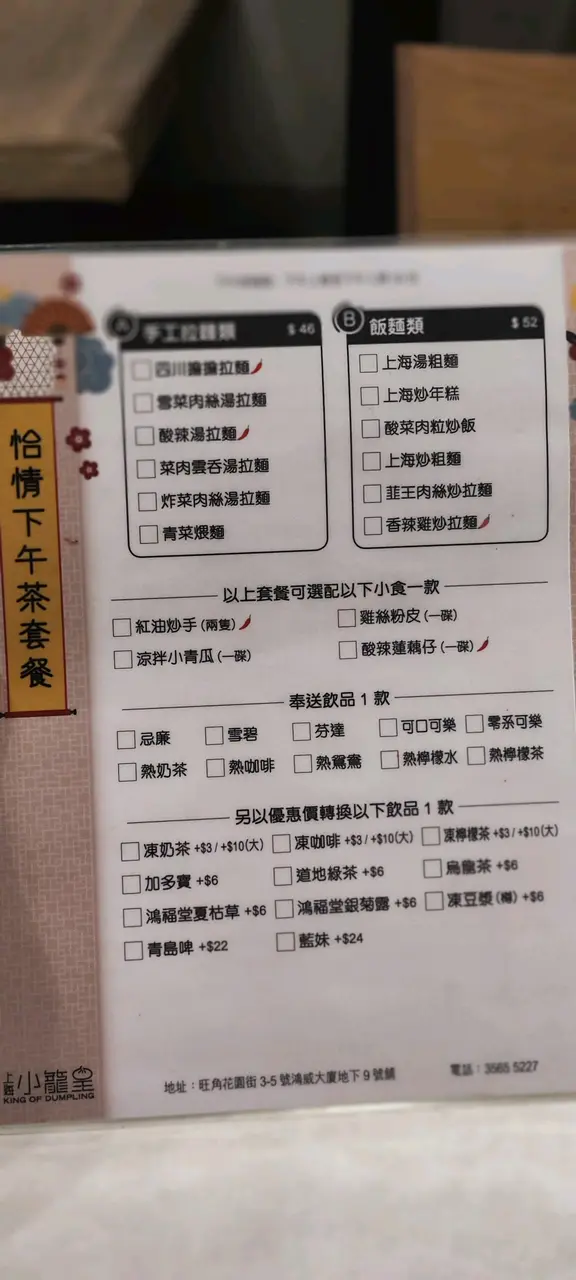 恰情下午茶套餐
A 手工拉麵類 $46
四川擔擔拉麵
雪菜肉絲湯拉麵
酸辣湯拉麵
菜肉雲吞湯拉麵
炸菜肉絲湯拉麵
青菜煨麵
B 飯麵類 $52
上海湯粗麵
上海炒年糕
酸菜肉粒炒飯
上海炒粗麵
韮王肉絲炒拉麵
香辣雞炒拉麵
以上套餐可選配以下小食一款
紅油炒手 (兩隻) 雞絲粉皮 (一碟)
涼拌小青瓜 (一碟) 酸辣蓮藕仔 (一碟)
奉送飲品 1 款
忌廉 雪碧 芬達 可口可樂 零系可樂
熱奶茶 熱咖啡 熱鴛鴦 熱檸檬水 熱檸檬茶
另以優惠價轉換以下飲品 1 款
凍奶茶 +$3 / +$10(大) 凍咖啡 +$3 / +$10(大) 凍檸檬茶 +$3 / +$10(大)
加多寶 +$6 道地綠茶 +$6 烏龍茶 +$6
鴻福堂夏枯草 +$6 鴻福堂銀菊露 +$6 凍豆漿 (樽) +$6
青島啤 +$22 藍妹 +$24
上海小籠皇
KING OF DUMPLING
地址：旺角花園街 3-5 號鴻威大廈地下 9 號舖 電話：3565 5227